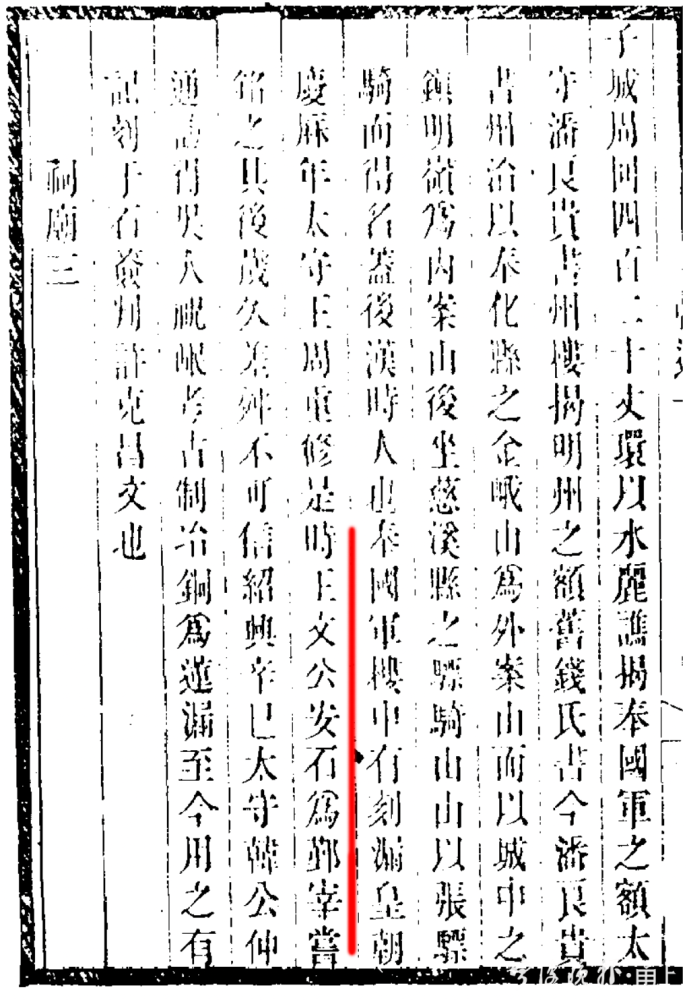 子城周回四百二十丈環以水麗譙揭奉國軍之額太
守潘良貴書州樓揭明州之額舊錢氏書今潘良貴
書州治以奉化縣之金峨山爲外案山而以城中之
鎮明嶺爲内案山後坐慈溪縣之驃騎山山以張驃
騎而得名蓋後漢時人也奉國軍樓中有刻漏皇朝
慶厤年太守王周重修是時王文公安石爲鄞宰嘗
銘之其後歲久差舛不可信紹興辛巳太守韓公仲
通訪得吳人祝岷考古制冶銅爲蓮漏至今用之有
記刻于石簽判許克昌文也
祠廟三